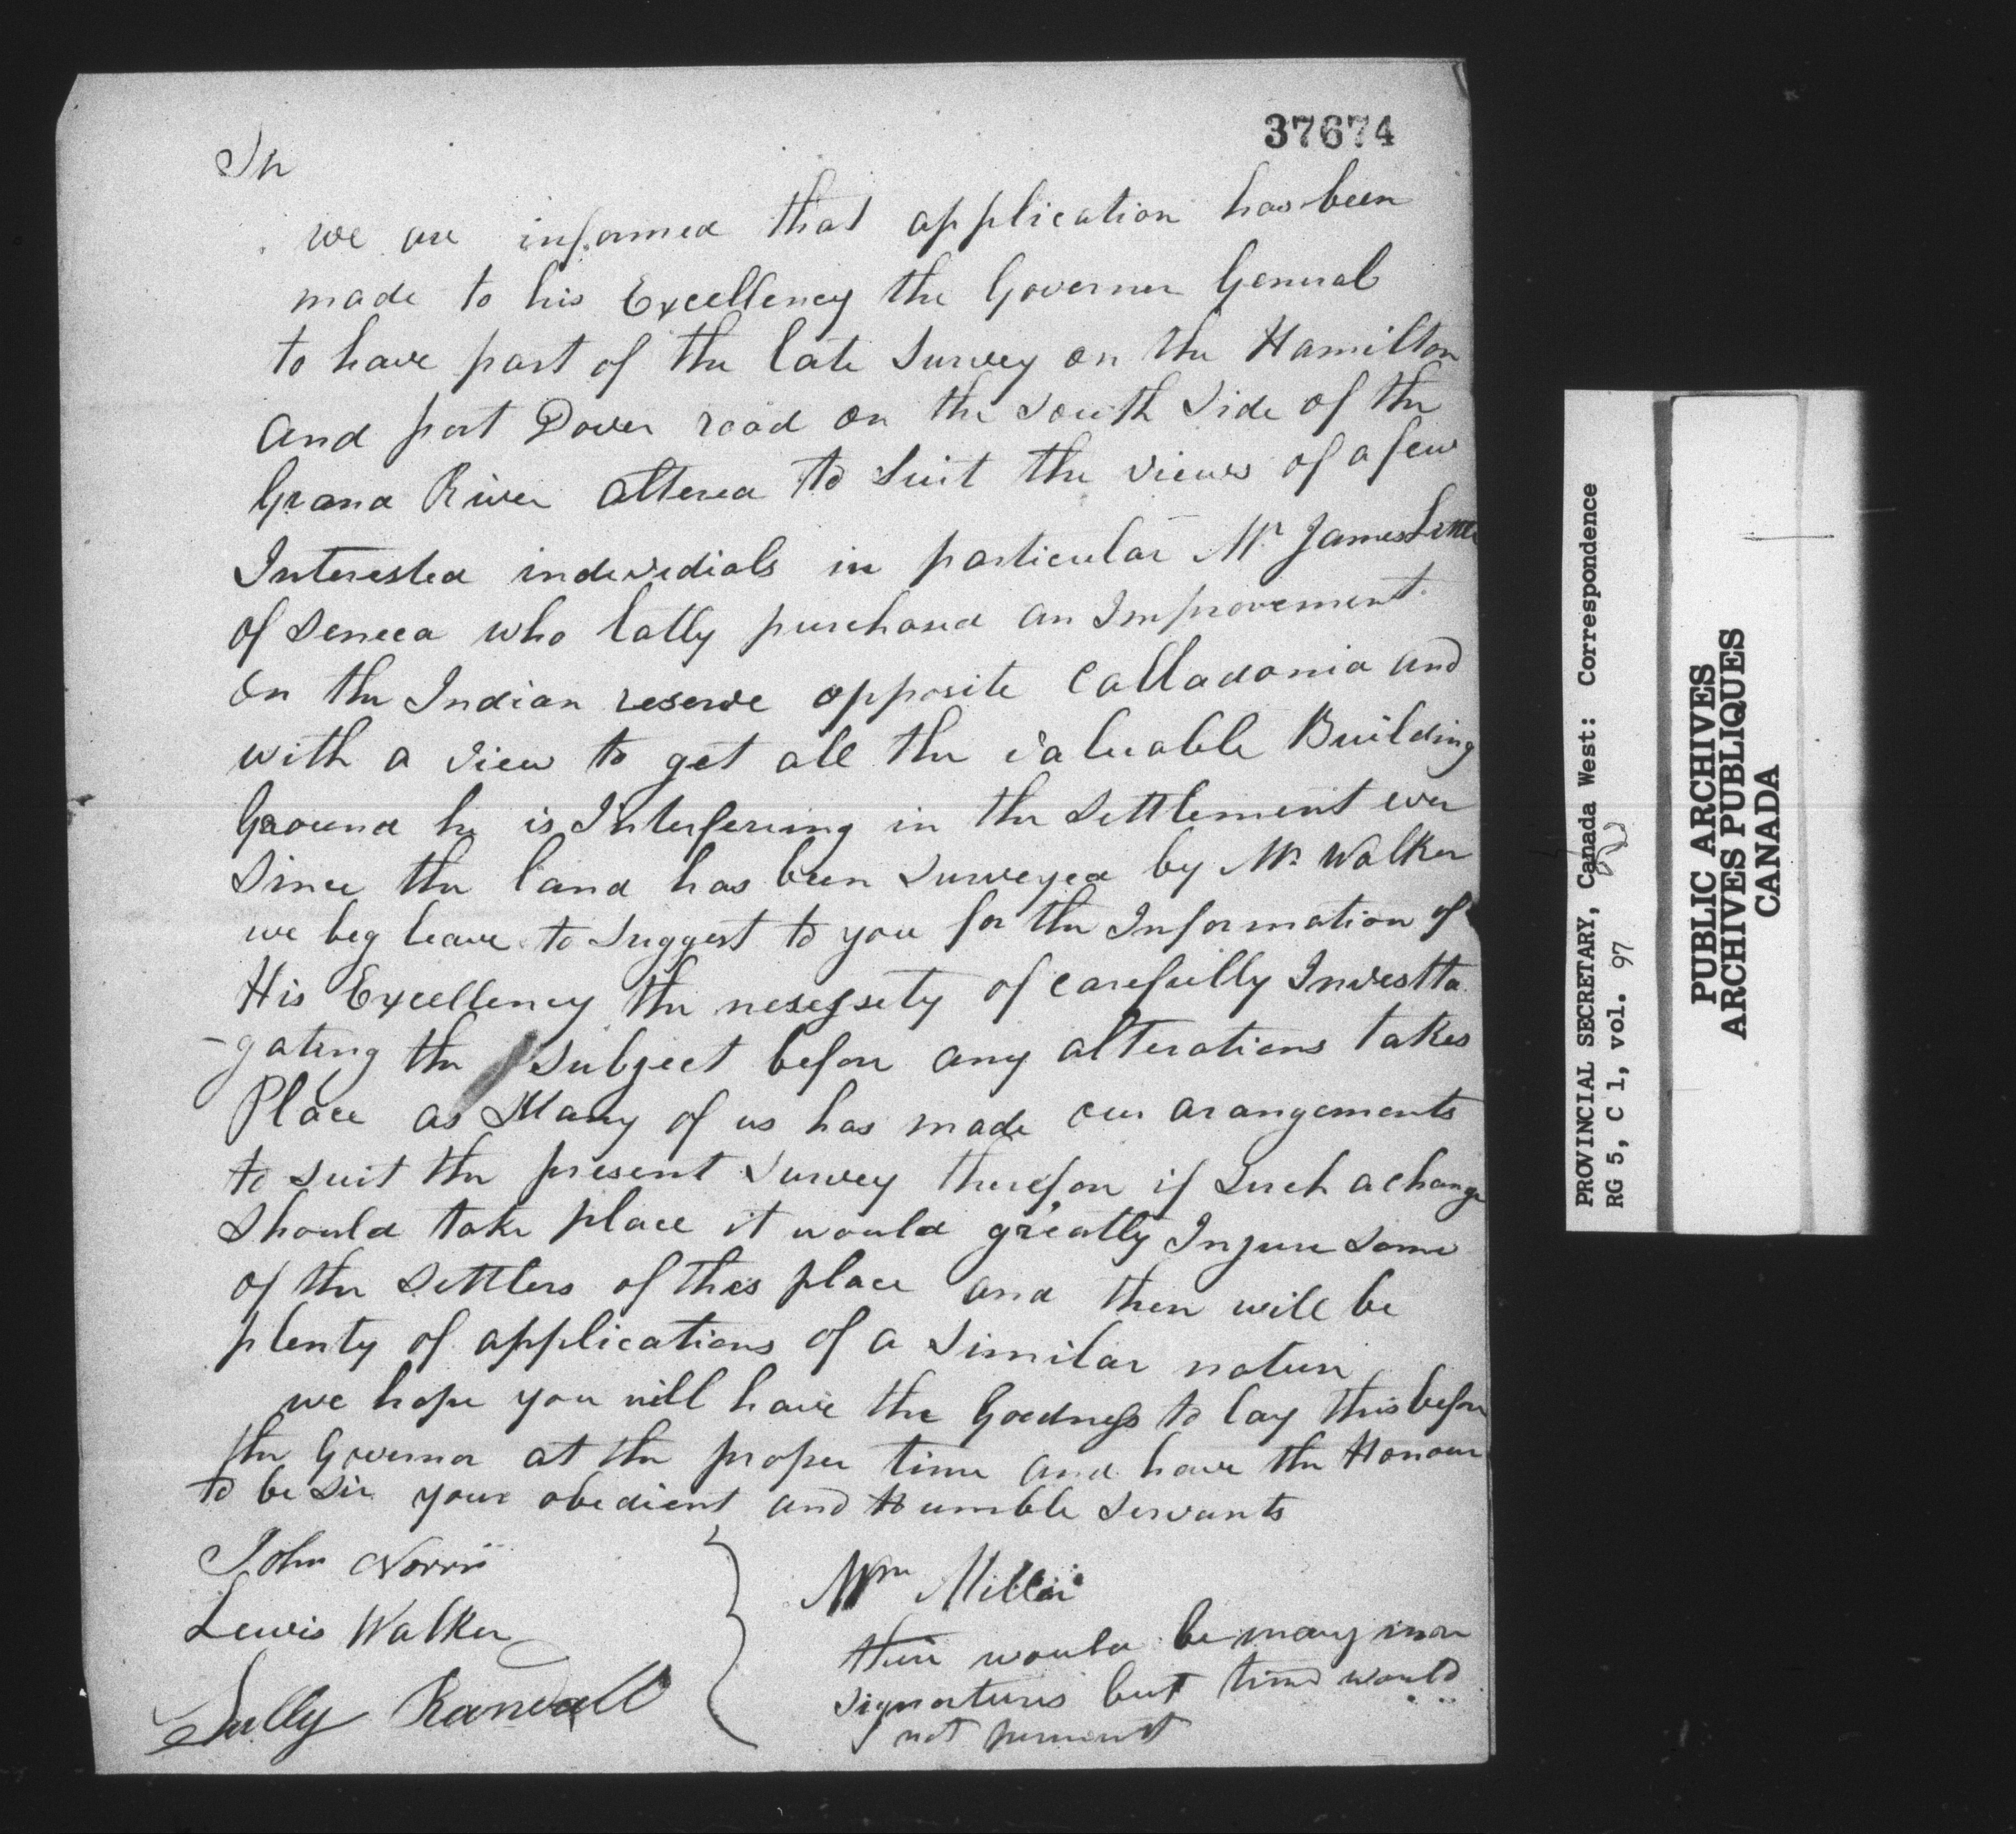 37674
Sir
we are informed that application has been
made to his Excellency the Governer General
to have part of the late Survey on the Hamilton
and port Dover road on the South Side of the
Grand River altered to Suit the views of a few
Interested indevidials in particular Mr James Little
of Seneca who latly purchased an Improvement
on the Indian reserve opposite Calladonia and
with a view to get all the valuable Building
Ground he is Interfering in the Settlement ever
Since the land has been Surveyed by Mr Walker
we beg leave to Suggest to you for the Information of
His Excellency the nesessety of carefully Investta
-gating the Subject before any alterations takes
Place as Many of us has made our arangements
to Suit the present Survey therefore if Such a change
Should take place it would greatly Injure Some
of the Settlers of this place and then will be
plenty of applications of a Similar nature
we hope you will have the Goodness to lay this before
the Governor at the proper time and have the Honour
to be Sir your obedient and Humble Servants
John Norris
Lewis Walker
Sully Randall
Wm Miller
their would be many more
signatures but time would
not permit
PROVINCIAL SECRETARY, Canada West: Correspondence
RG 5, C 1, vol. 97
PUBLIC ARCHIVES
ARCHIVES PUBLIQUES
CANADA